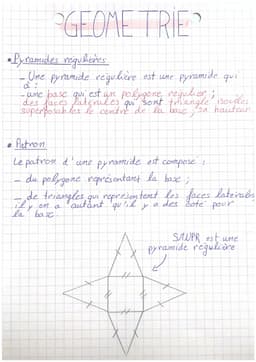 GEOMETRIE
• Pyramides régulières
- Une pyramide régulière est une pyramide qui
a :
- une base qui est un polygone régulier ;
des faces latérales qui sont triangle isocèles
superposables le centre de la base ; sa hauteur
• Patron
Le patron d'une pyramide est composé :
- du polygone représentant la base ;
- de triangles qui représentent les faces latérales
il y en a autant qu'il y a des coté pour
la base.
est une
pyramide régulière